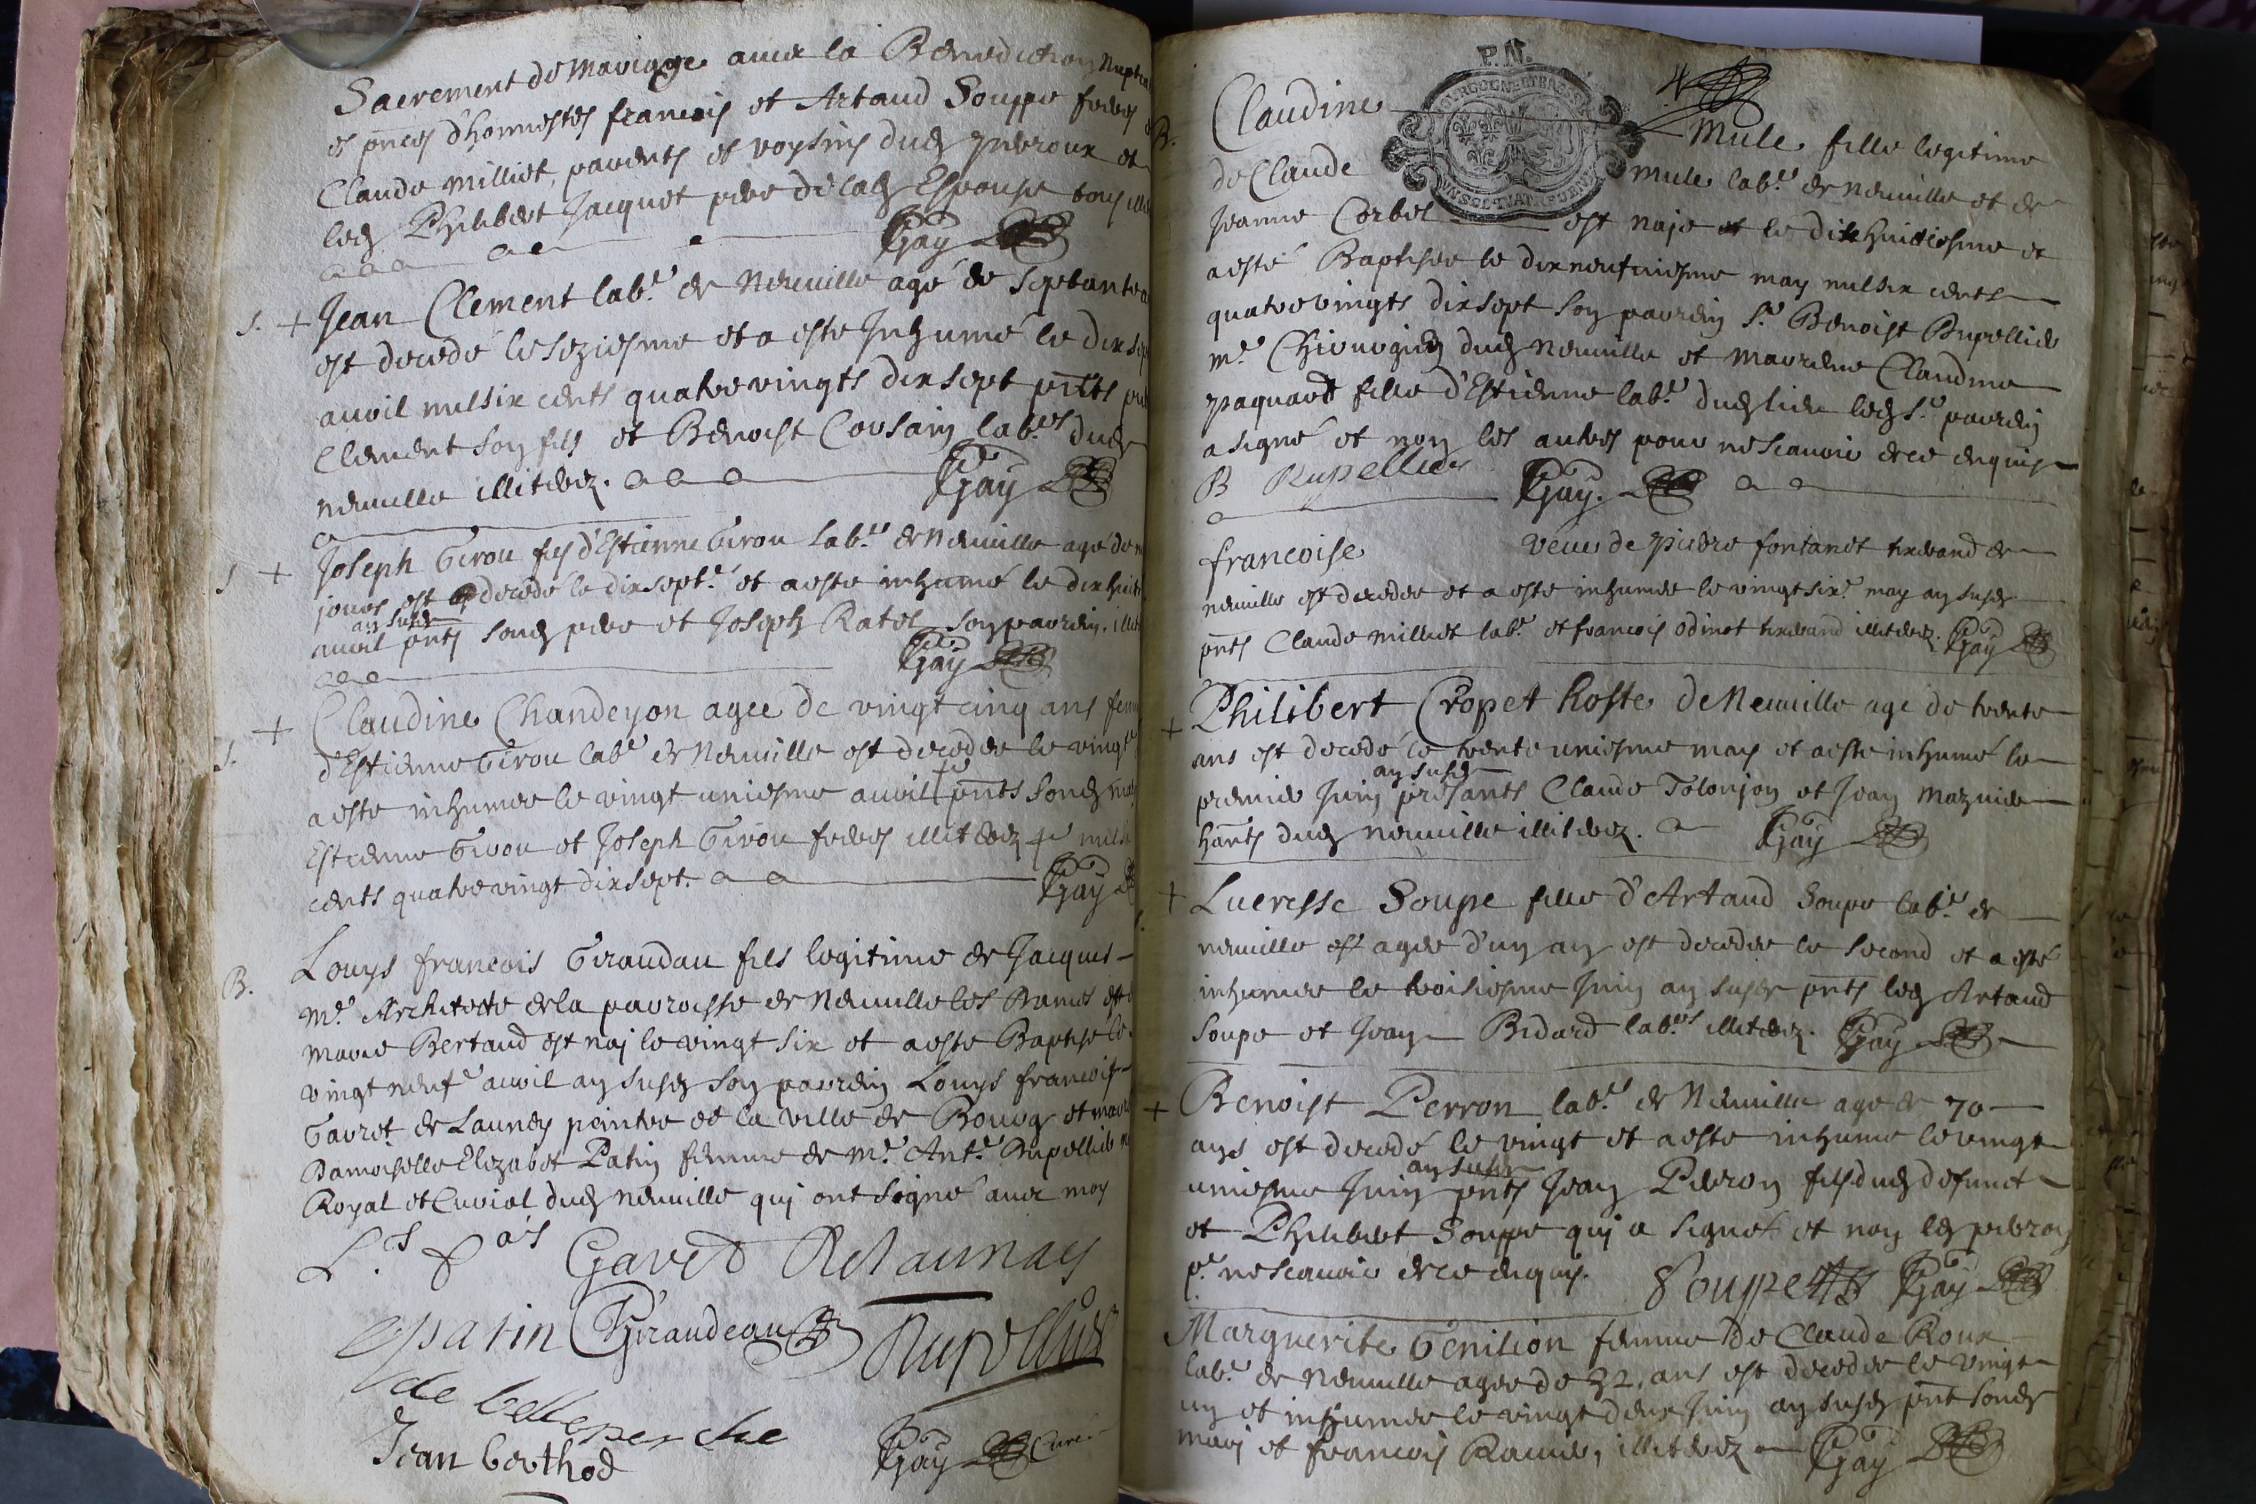 Sacrement de Mariage avec la Benediction Nuptia
et pnces d'honnestes francois et Artaud Souppe freres
Claude Milliet, parents et voysins dud
led Philibert Jacquet pere de lad Espouse tous
Gay
s. + Jean Clement labr de Neuville agé de septante
est decedé le seziesme et a esté Inhumé le dix sep
avril mil six cents quatre vingts dix sept pnts
Clement son fils et Benoist Corsain labrs dud
neuville illiterez.
Gay
s + Joseph Girou fils d'Estienne Girou labr de Neuville agé de
jours est decedé le dix septe et a esté inhumé le dix huit
an susd
avril pnts sond pere et Joseph Ratel son parrein. illit
Gay
s. + Claudine Chandeyon agee de vingt cinq ans fem
d'Estienne Girou labr de Neuville est decedee le vingt
a esté inhumee le vingt uniesme avril pnts sond
Estienne Girou et Joseph Girou freres illiterez
cents quatre vingt dix sept.
Gay
B. Louys francois Giraudau fils legitime de Jacques
me Architecte de la parroisse de Neuville les Dames et
Marie Bertaud est naj le vingt six et a esté Baptisé le
vingt neufe avril an susd son parrein Louys francois
Gavret de Launey peintre de la ville de Bourg et
Damoiselle Elizabet Patin femme de me Ante Rupellier
Royal et Curial dud neuville qui ont signé avec moy
L.s f ois Gavet Delaunay
patin Giraudeau Rupellier
de belleperche
Jean berthod
Gay Curé
P.N.
B. Claudine Mule fille legitime
de Claude Mule labr de Neuville et de
Jeanne Corbet est naje le dix huitiesme et
a esté Baptisee le dix neufuiesme may mil six cents
quatre vingts dix sept son parrein Sr Benoist Rupellier
me Chirurgien dud Neuville et marreine Claudine
paquard fille d'Estienne labr dud lieu led Sr parrein
a signé et non les autres pour ne scavoir de ce enquis
B Rupellier
Gay.
francoise veuve de pierre fontanet tixerand de
neuville est decedee et a esté inhumee le vingt sixe may an susd
pnts Claude Milliet labr et francois Odinot tixerand illiterez. Gay
+ Philibert Cropet hoste de Neuville agé de trente
ans est decedé le trente uniesme may et a esté inhumé le
an susd
premier Juin presants Claude Tolonjon et Jean Mazuier
hants dud neuville illiterez.
Gay
+ Lucresse Soupe fille d'Artaud Soupe labr de
neuville est agee d'un an est decedee le second et a esté
inhumee le troisiesme Juin an susd pnts led Artaud
Soupe et Jean Bidard labrs illiterez. Gay
+ Benoist Perron labr de Neuville agé de 70
ans est decedé le vingt et a esté inhumé le vingt
an susd
uniesme Juin pnts Jean Perron fils dud defunct
et Philibert Souppe qui a signé et non led perron
pr ne scavoir de ce enquis.
Souppe Gay
Marguerite Génition femme de Claude Roux
labr de Neuville agee de 32. ans est decedee le vingt
un et inhumee le vingt deux Juin an susd pnt sond
mari et francois Ravier, illiterez
Gay